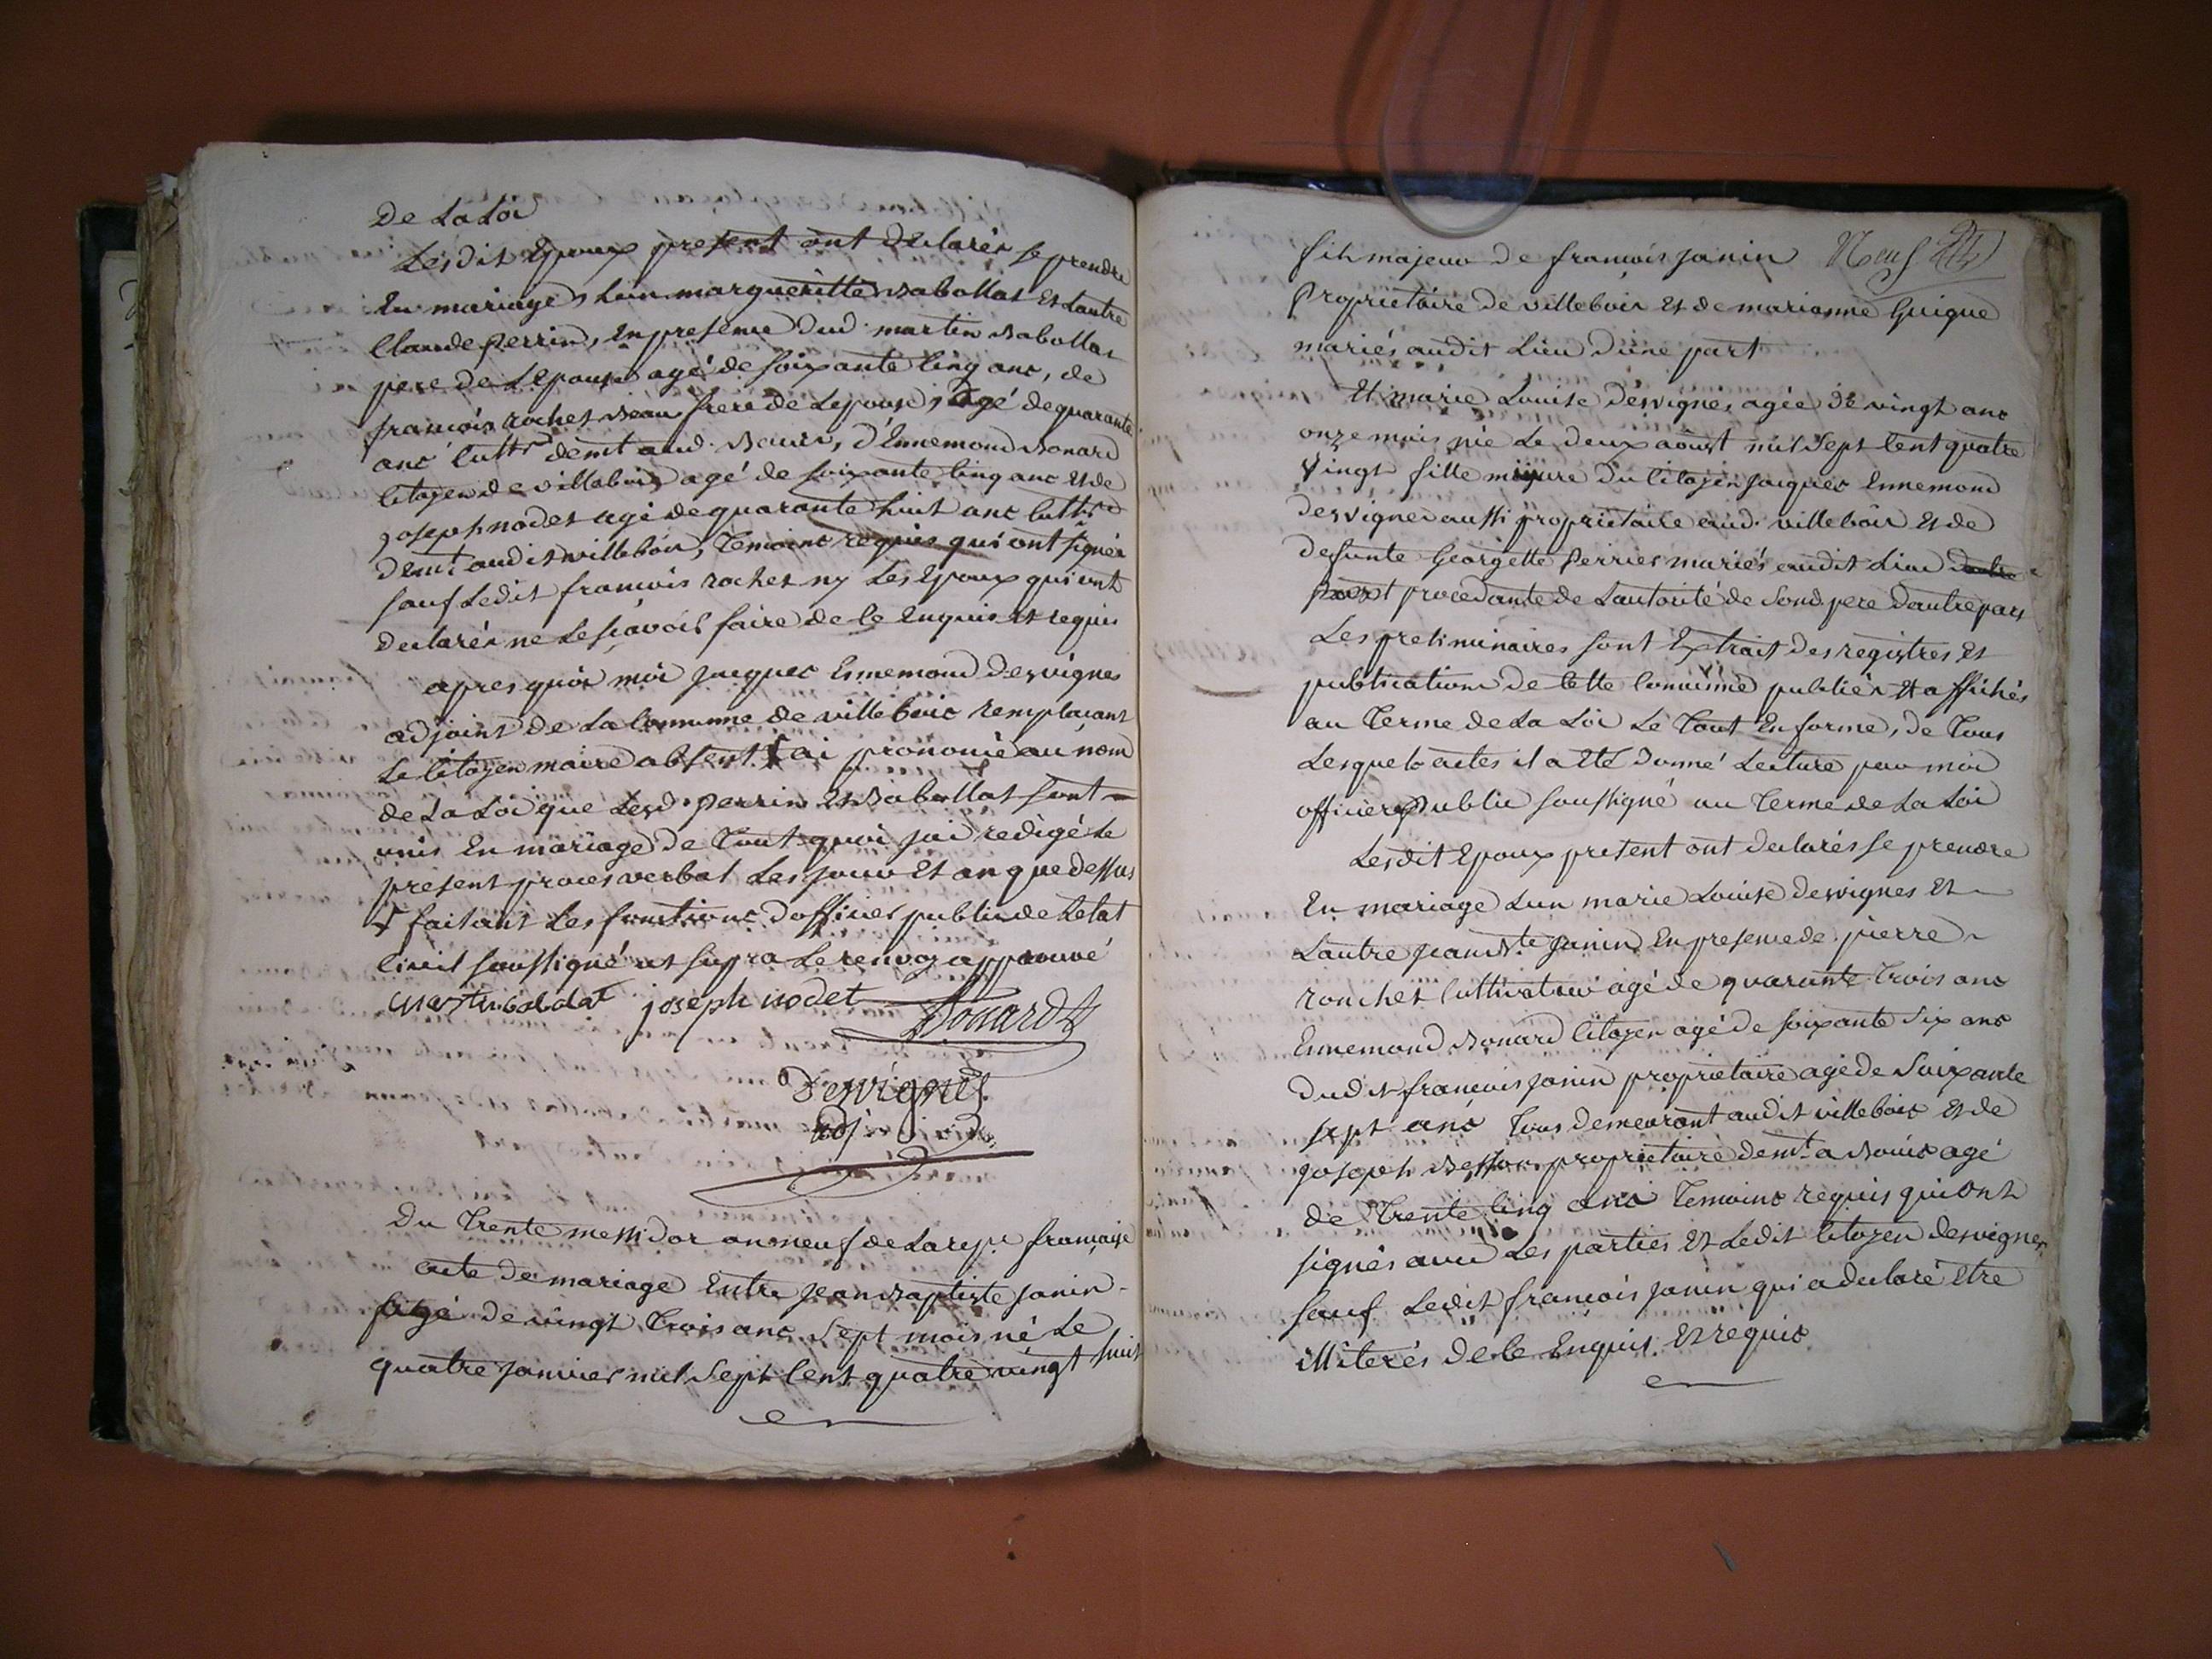 De La Loi
Lesdit Epoux present ont declarés se prendre
En mariage, Lun margueritte Babollat Et Lautre
Claude perrin, En presence dud. martin Babollat
pere de Lepouse agé de soixante cinq ans, de
francois rochet Beau frere de Lepouse, agé de quarante
ans cultr demt aud. Bouis, d'Ennemond Bonard
Citoyen de villebois agé de soixante cinq ans et de
joseph nodet agé de quarante huit ans cultr
demt audit villebois, Temoins requis qui ont signés
sauf Ledit francois rochet ny Les Epoux qui ont
declarés ne Le sçavoir faire de ce Enquis et requis
apres quoi moi jacques Ennemond desvignes
adjoint de La Commune de villebois remplacant
Le Citoyen maire absent ai prononcé au nom
de La Loi que Lesd. perrin Et Babollat sont
unis En mariage de Tout quoi jai redigé Le
present proces verbal Les jour Et an que dessus
faisant Les fonctions dofficier public de Letat
Civil soussigné ut supra Le renvoy approuvé
joseph nodet Bonard
Desvignes
adj.
Du Trente messidor an neuf de La repu francaise
acte de mariage Entre jean Baptiste janin
agé de vingt Trois ans sept mois né Le
quatre janvier mil sept Cent quatre vingt huit
fils majeur de francois janin Neuf
proprietaire de villebois Et de marianne Guigue
mariés audit Lieu d'une part
Et marie Louise Desvignes agée de vingt ans
onze mois née Le deux aoust mil sept Cent quatre
vingt fille mineure du Citoyen jacques Ennemond
desvignes aussi proprietaire aud. villebois Et de
defunte Georgette perrier mariés audit Lieu dautre
part procedante de Lautorité de sond. pere dautre part
Les preliminaires sont Extrait des registres Et
publications de Cette Commune publiés Et affichés
au Terme de La Loi Le Tout En forme, de Tous
Lesquels actes il a Eté donné Lecture par moi
officier public soussigné au Terme de La Loi
Lesdit Epoux present ont declarés se prendre
En mariage Lun marie Louise desvignes Et
Lautre jean Bte janin En presence de pierre
ronchet Cultivateur agé de quarante Trois ans
Ennemond Bonard Citoyen agé de soixante six ans
dudit francois janin proprietaire agé de soixante
sept ans Tous demeurant audit villebois Et de
joseph Besson proprietaire demt. a Bouis agé
de Trente Cinq ans Temoins requis qui ont
signés avec Les parties Et Ledit Citoyen desvignes
sauf Ledit francois janin qui a declaré Etre
illiterés de Ce Enquis Et requis